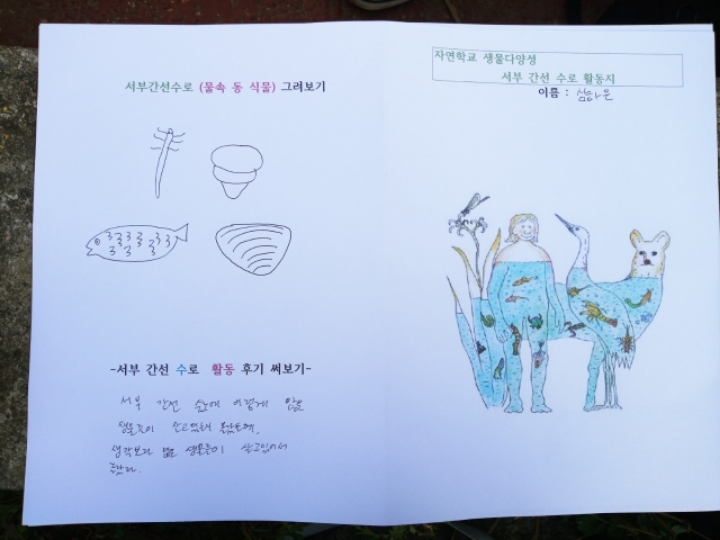 서부간선수로 (물속 동 식물) 그려보기
-서부 간선 수로 활동 후기 써보기-
서부 간선 수로에 이렇게 많은
생물들이 살고있는지 몰랐는데,
생각보다 많은 생물들이 살고있어서
좋았다.
자연학교 생물다양성
서부 간선 수로 활동지
이름 :